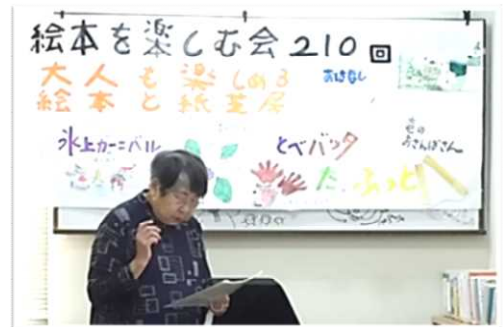 絵本を楽しむ会210回
大人も楽しめる
絵本と紙芝居
おはなし
氷上カーニバル
とべバッタ